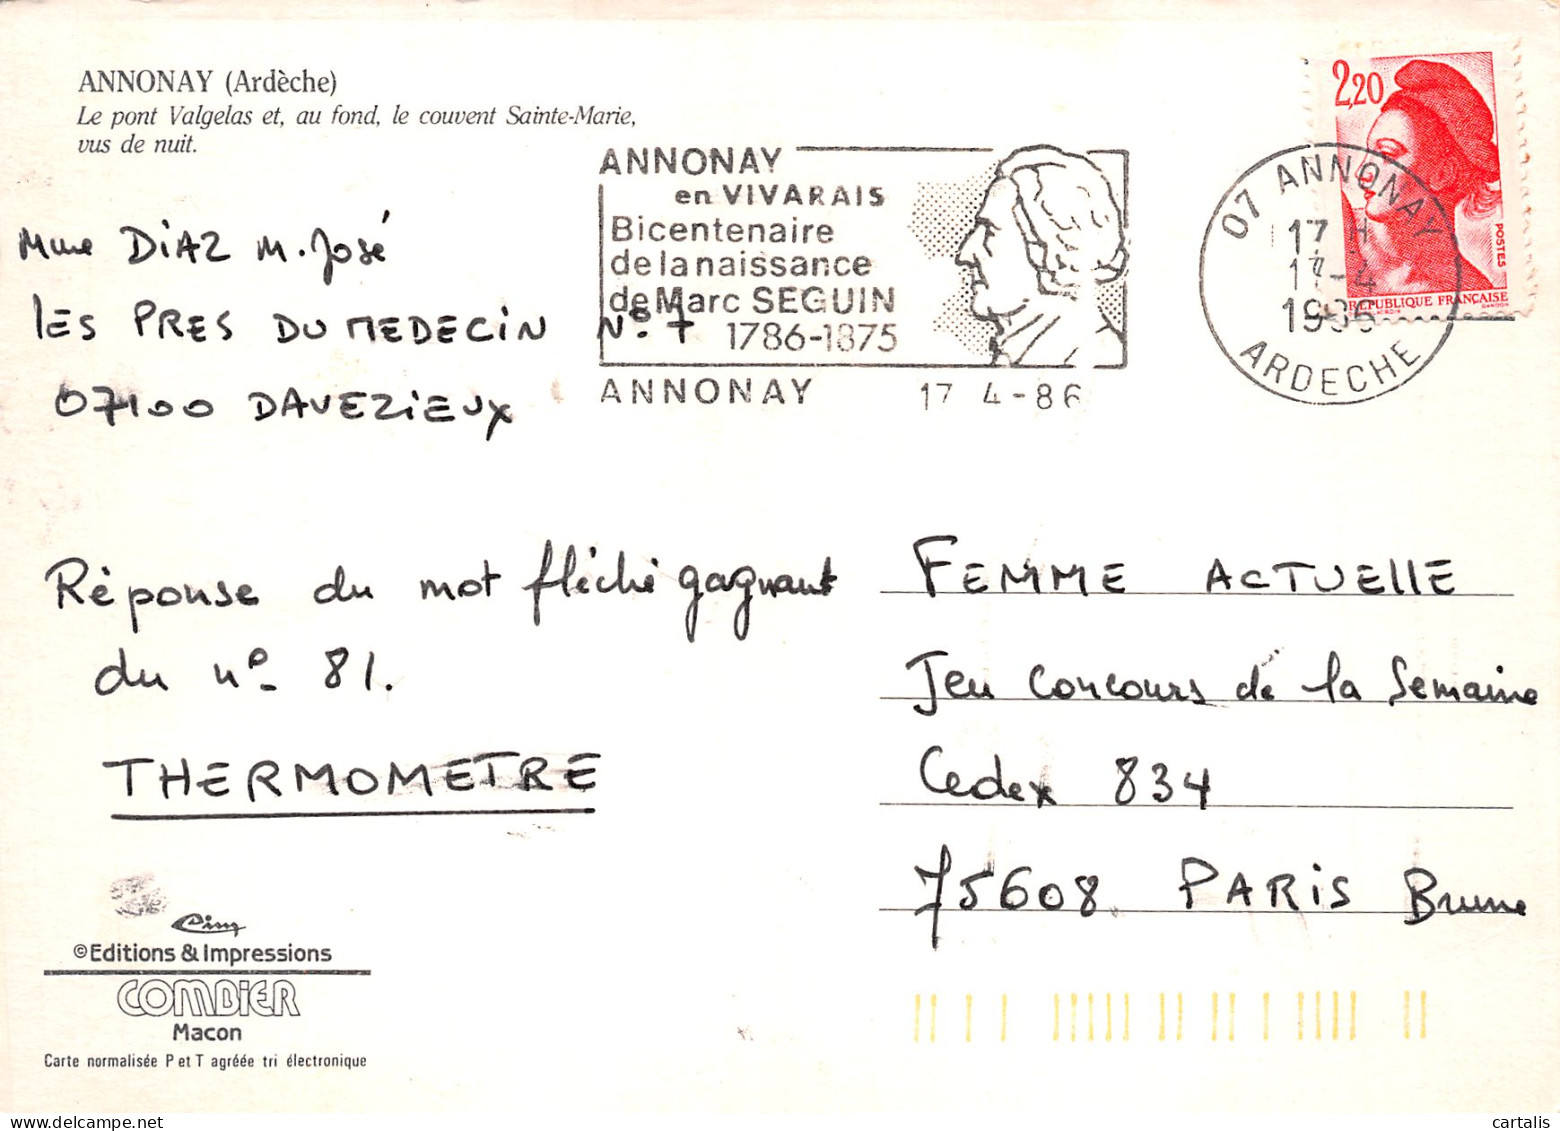 ANNONAY (Ardèche)
Le pont Valgelas et, au fond, le couvent Sainte-Marie,
vus de nuit.
ANNONAY
en VIVARAIS
Bicentenaire
de la naissance
de Marc SEGUIN
1786-1875
ANNONAY 17 4-86
2,20
POSTES
REPUBLIQUE FRANÇAISE
07 ANNONAY
17 H
17-4
1986
ARDECHE
Mme DiAZ M. José
lES PRES DU MEDECIN N° 7
07100 DAVEZiEUX
Réponse du mot fléché gagnant
du n° 81.
THERMOMETRE
FEMME ACTUEllE
Jeu Concours de la Semaine
Cedex 834
75608 PARiS Brune
Cim
©Editions & Impressions
COMBIER
Macon
Carte normalisée P et T agréée tri électronique
cartalis
www.delcampe.net